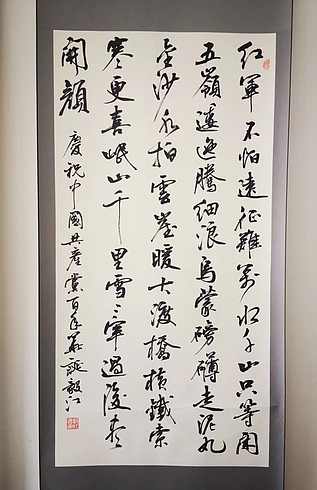 红軍不怕遠征難萬水千山只等閑
五嶺逶迤騰細浪烏蒙磅礴走泥丸
金沙水拍雲崖暖大渡橋橫鐵索
寒更喜岷山千里雪三軍過後盡
開顏
慶祝中國共產黨百年華誕毅江